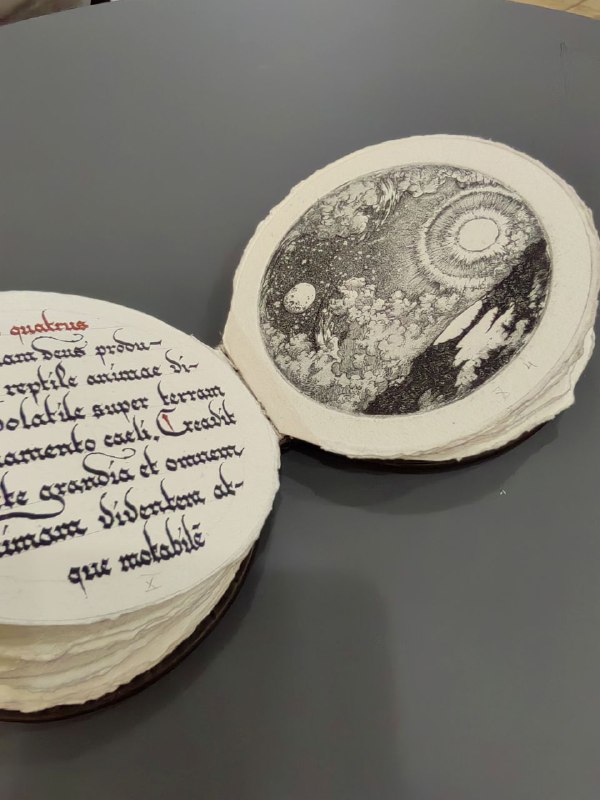 quatrus
iam deus produ-
reptile animae di-
volatile super terram
amento caeli. Creadit
te grandia et omnem
animam videntem at-
que motabilē
X
X